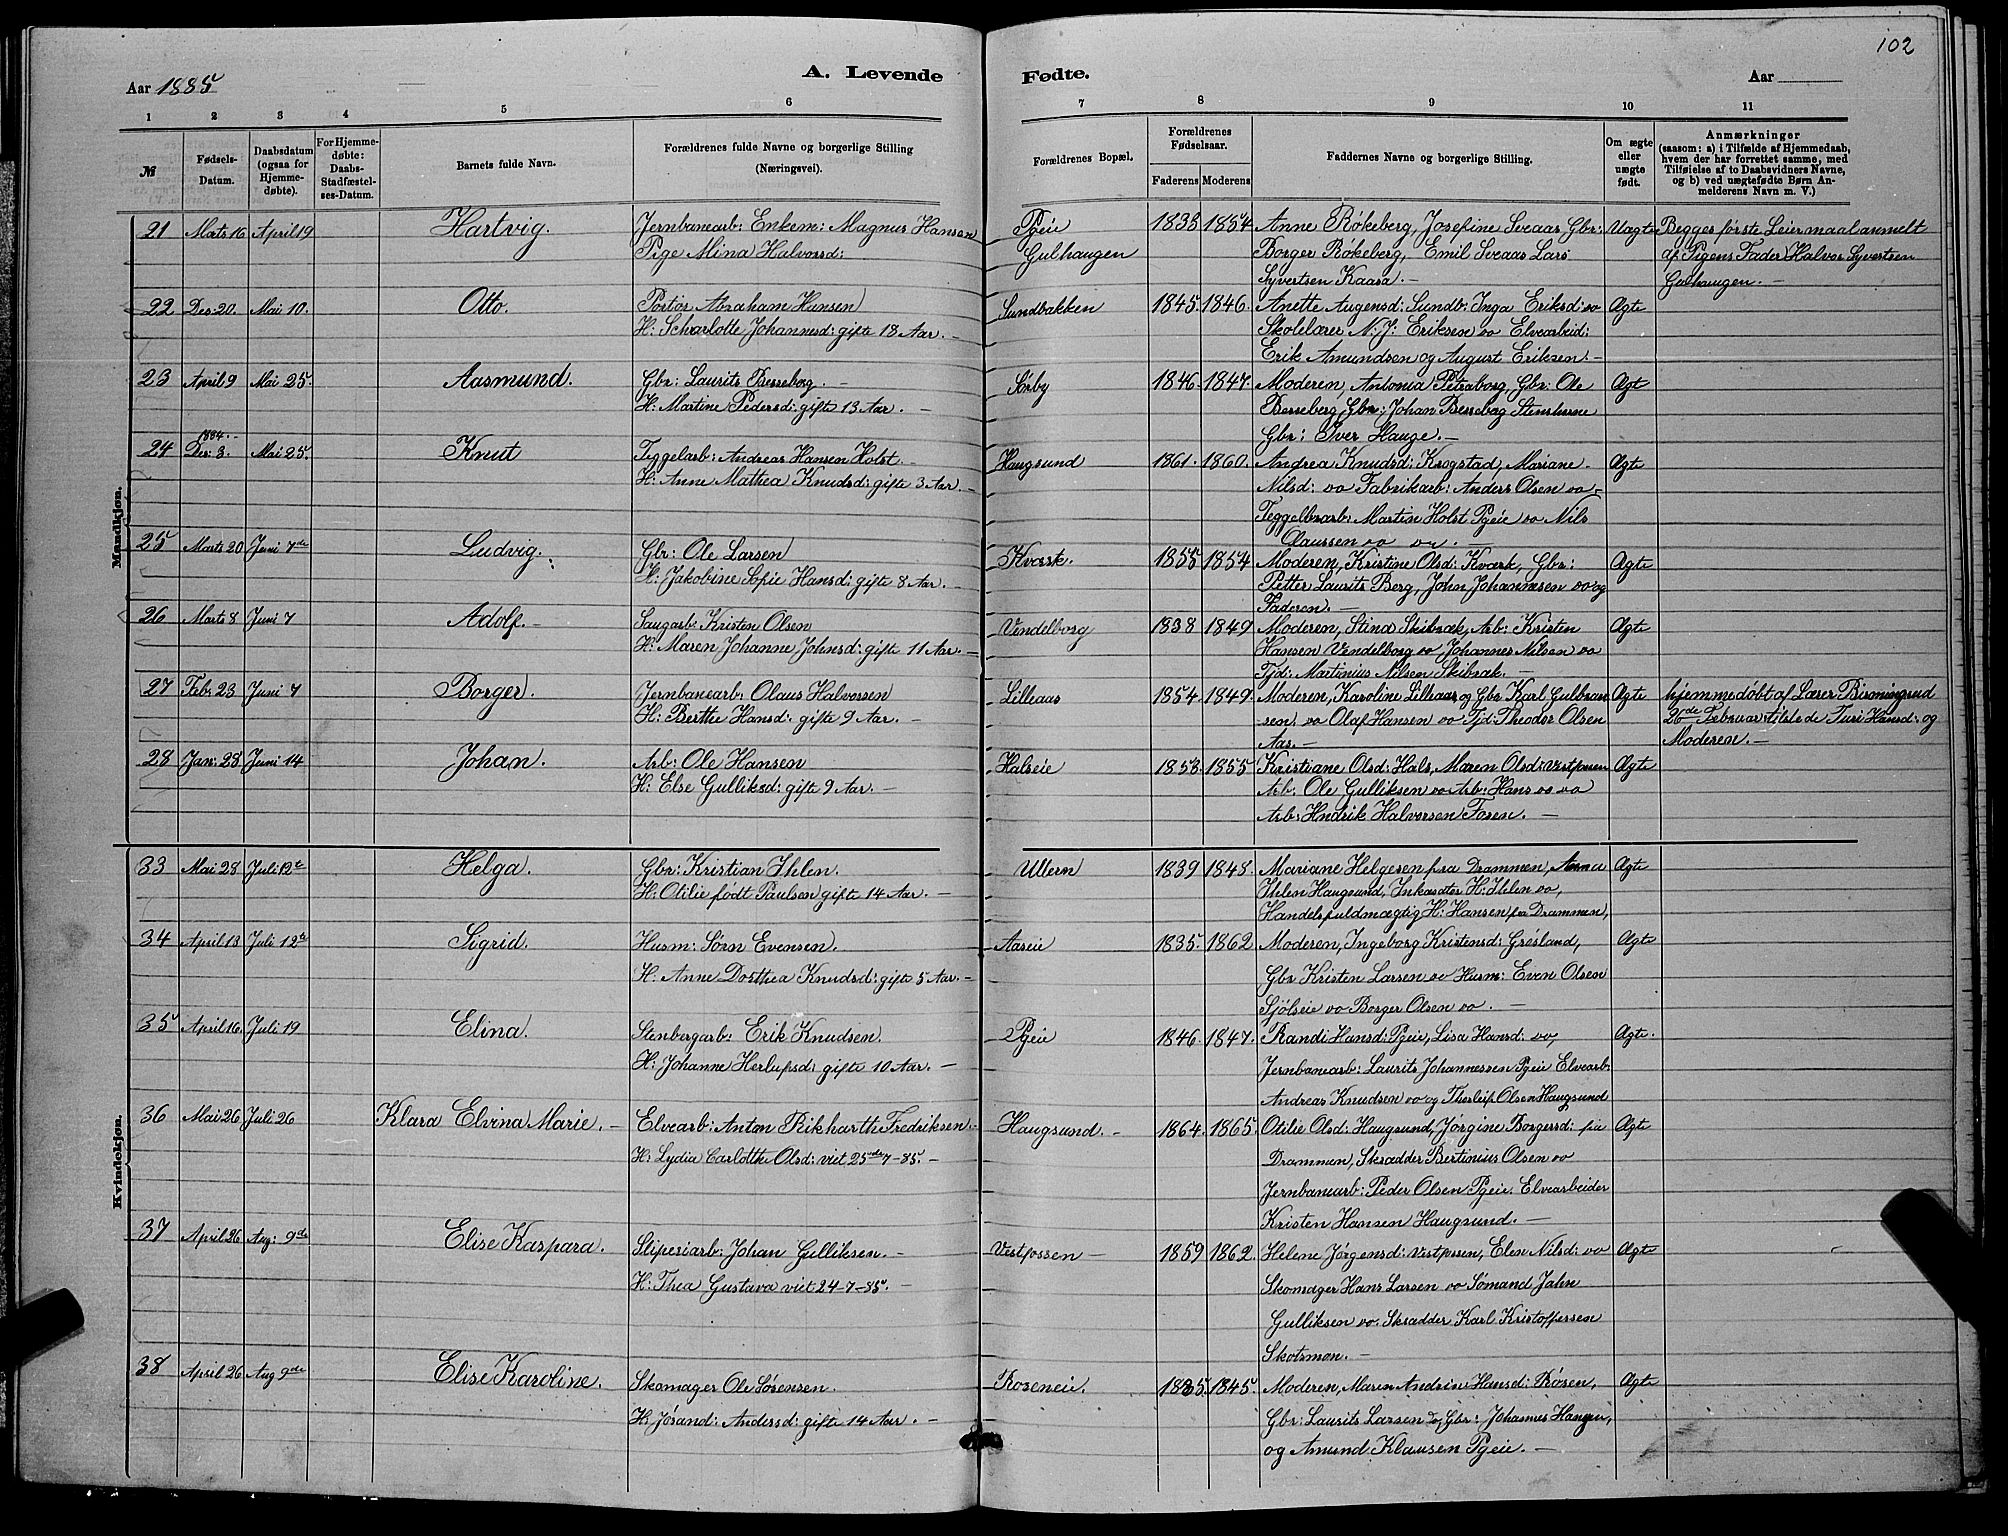 102
Aar 1885
A. Levende Fødte.
Aar
1 2 3 4 5 6 7 8 9 10 11
№
Fødsels-Datum.
Daabsdatum (ogsaa for Hjemmedøbte).
For Hjemmedøbte: Daabs-Stadfæstelses-Datum.
Barnets fulde Navn.
Forældrenes fulde Navne og borgerlige Stilling (Næringsvei).
Forældrenes Bopæl.
Forældrenes Fødselsaar.
Faderens Moderens
Faddernes Navne og borgerlige Stilling.
Om ægte eller uægte født.
Anmærkninger (saasom: a) i Tilfælde af Hjemmedaab, hvem der har forrettet samme, med Tilføielse af to Daabsvidners Navne, og b) ved uægtefødte Børn Anmelderens Navn m. V.)
Mandkjøn.
21 Marts 16 April 19 Hartvig. Jernbanearb: Enkem: Magnus Hansen Pgeie 1833 1854 Anne Røkeberg, Josefine Sveaas Gbr: Uægte Begges første Leiermaal anmelt
Pige Mina Halvorsd: Gulhaugen Borger Røkeberg, Emil Sveaas Lars af Pigens Fader Halvor Syvertsen
Syvertsen Kaasa. — Gulhaugen. —
22 Des: 20. Mai 10. Otto. Portør Abraham Hansen Sundbakken 1845. 1846. Anette Augensd: Sundb: Inga Eriksd: oo Ægte
H: Scharlotte Johannesd: gifte 18 Aar. — Skolelærer N: J: Eriksen oo Elvearbeid:
Erik Amundsen og August Eriksen. —
23 April 9 Mai 25. Aasmund. Gbr: Laurits Besseberg. — Sørby 1846. 1847. Moderen, Antonia Petraborg, Gbr: Ole Ægt
H: Martine Pedersd: gifte 13 Aar. — Besseberg, Gbr: Johan Besseberg
Gbr: Iver Hauge. —
1884. —
24 Des: 3. Mai 25. Knut Teggelarb: Andreas Hansen Holst. — Haugsund 1861. 1860. Andrea Knudsd: Krogstad, Mariane Ægte
H: Anne Mathea Knudsd: gifte 3 Aar. — Nilsd: oo Fabrikarb: Anders Olsen oo —
Teggelbrarb: Martin Holst Pgeie oo Nils
Claussen oo oo. —
25 Marts 20 Juni 7de Ludvig. Gbr: Ole Larsen Kværk. 1855 1854 Moderen, Kristine Olsd: Kværk, Gbr: Ægte
H: Jakobine Sofie Hansd: gifte 8 Aar. — Petter Laurits Berg, John Johannesen oo og
Faderen. —
26 Marts 8 Juni 7 Adolf. — Saugarb: Kristen Olsen Vendelborg 1838 1849 Moderen, Stina Skibræk, Arb: Kristen Ægte
H: Maren Johanne Johnsd: gifte 11 Aar. — Hansen Vendelborg oo, Johannes Nilsen oo
Tjd: Martinius Nilsen Skibræk. —
27 Feb: 23 Juni 7 Borger. Jernbanearb: Olaus Halvorsen Lilleaas 1854. 1849. Moderen, Karoline Lilleaas, og Gbr Karl Gulbran Ægte hjemmedøbt af Lærer Birmingrud
H: Berthe Hansd: gifte 9 Aar. — sen, oo Olaf Hansen oo Tjd: Theodor Olsen 26de Februar: tilstede Turi Hansd: og
Aas. — Moderen. —
28 Jan: 28 Juni 14 Johan. Arb: Ole Hansen Halseie 1853. 1855 Kristiane Olsd: Hals, Maren Olsd: Vestfossen Ægte
H: Else Gulliksd: gifte 9 Aar. — Arb: Ole Gulliksen oo Arb: Hans oo oo
Arb: Hndrik Halvorsen Foren. —
Kvindekjøn.
33 Mai 28 Juli 12te Helga. Gbr: Kristian Ihlen. Ullern 1839 1848. Mariane Helgesen fra Drammen, Anna Ægte
H: Otilie født Paulsen gifte 14 Aar. — Ihlen Haugsund, Inkasatør H: Ihlen oo,
Handelsfuldmægtig H: Hansen fra Drammen,
34 April 13 Juli 12te Sigrid. Husm: Sørn Evensen. Aaseie 1835. 1862 Moderen, Ingeborg Kristensd: Gresland, Ægte
H: Anne Dorthea Knudsd: gifte 5 Aar. — Gbr Kristen Larsen oo Husm: Even Olsen
Sjølseie oo Borger Olsen oo. —
35 April 16. Juli 19 Elina. Stenbergarb: Erik Knudsen. Pgeie 1846. 1847. Randi Hansd: Pgeie, Lisa Hansd: oo, Ægte.
H: Johanne Herlupsd: gifte 10 Aar. — Jernbanearb: Laurits Johannessen Pgeie Elvearb:
Andreas Knudsen oo og Thorleif Olsen Haugsund
36 Mai 26 Juli 26 Klara Elvina Marie. — Elvearb: Anton Rikharth Fredriksen. — Haugsund. — 1864. 1865. Otilie Olsd: Haugsund, Jørgine Borgersd: fra Ægte
H: Lydia Carlotthe Olsd: viet 25de 7–85. — Drammen, Skrædder Bertinius Olsen oo
Jernbanearb: Peder Olsen Pgeie. Elvearbeider
Kristen Hansen Haugsund. —
37 April 26 Aug: 9de Elise Kaspara. Slipesiarb: Johan Gulliksen. — Vestfossen — 1859 1862. Helene Jørgensd: Vestfssen, Elen Nilsd: oo Ægte
H: Thea Gustava viet 24–7–85. — Skomager Hans Larsen oo Sømand Jahn
Gulliksen oo. Skrædder Karl Kristoffersen
Skotsmon. —
38 April 26 Aug 9de Elise Karoline. Skomager Ole Sørensen. Roseneie. 1835. 1845. Moderen, Maren Andrin Hansd: Røsen, Ægte
H: Jørand: Andersd: gifte 14 Aar. — Gbr: Laurits Larsen do, Gbr: Johannes Hangen,
og Amund Klausen Pgeie. —